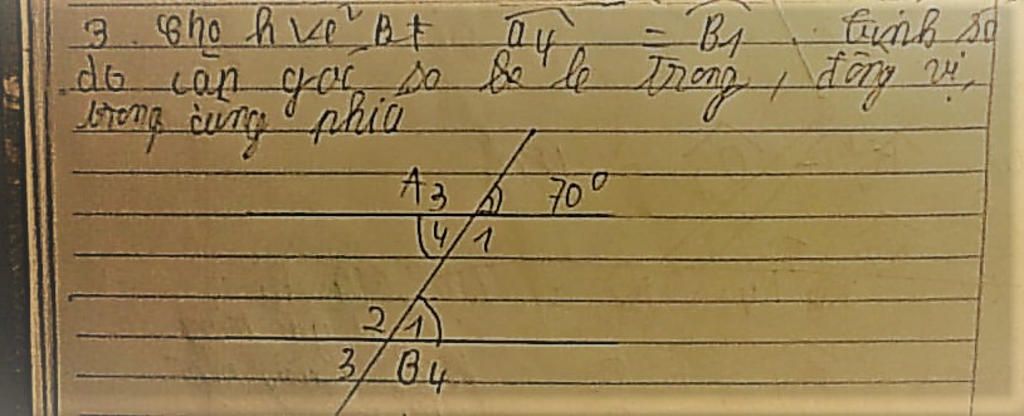 3. Cho h vẽ Bt a4 = B1. tính số
đo căn góc so le le trong, đông vị,
trong cùng phía
A 3 70°
4 1
2 1
3 B 4